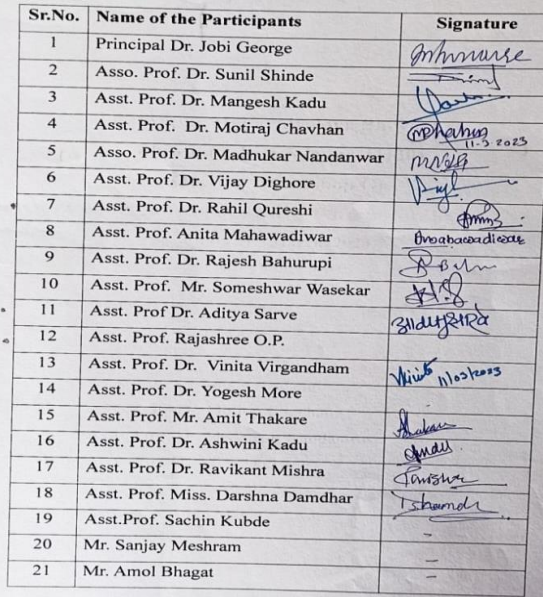 Sr.No. Name of the Participants Signature
1 Principal Dr. Jobi George
2 Asso. Prof. Dr. Sunil Shinde
3 Asst. Prof. Dr. Mangesh Kadu
4 Asst. Prof. Dr. Motiraj Chavhan
11-3-2023
5 Asso. Prof. Dr. Madhukar Nandanwar
6 Asst. Prof. Dr. Vijay Dighore
7 Asst. Prof. Dr. Rahil Qureshi
8 Asst. Prof. Anita Mahawadiwar
9 Asst. Prof. Dr. Rajesh Bahurupi
10 Asst. Prof. Mr. Someshwar Wasekar
11 Asst. Prof Dr. Aditya Sarve
12 Asst. Prof. Rajashree O.P.
13 Asst. Prof. Dr. Vinita Virgandham 11/03/2023
14 Asst. Prof. Dr. Yogesh More
15 Asst. Prof. Mr. Amit Thakare
16 Asst. Prof. Dr. Ashwini Kadu
17 Asst. Prof. Dr. Ravikant Mishra
18 Asst. Prof. Miss. Darshna Damdhar
19 Asst.Prof. Sachin Kubde
20 Mr. Sanjay Meshram –
21 Mr. Amol Bhagat –